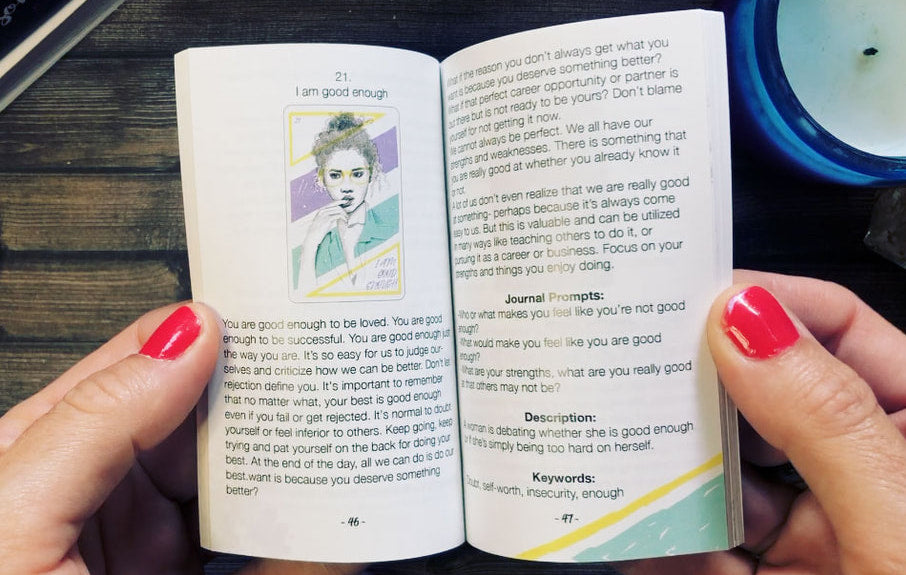 21.
I am good enough
21
I AM
GOOD
ENOUGH
You are good enough to be loved. You are good
enough to be successful. You are good enough just
the way you are. It's so easy for us to judge our-
selves and criticize how we can be better. Don't let
rejection define you. It's important to remember
that no matter what, your best is good enough
even if you fail or get rejected. It's normal to doubt
yourself or feel inferior to others. Keep going, keep
trying and pat yourself on the back for doing your
best. At the end of the day, all we can do is do our
best.want is because you deserve something
better?
- 46 -
What if the reason you don't always get what you
want is because you deserve something better?
What if that perfect career opportunity or partner is
out there but is not ready to be yours? Don't blame
yourself for not getting it now.
We cannot always be perfect. We all have our
strengths and weaknesses. There is something that
you are really good at whether you already know it
or not.
A lot of us don't even realize that we are really good
at something- perhaps because it's always come
easy to us. But this is valuable and can be utilized
in many ways like teaching others to do it, or
pursuing it as a career or business. Focus on your
strengths and things you enjoy doing.
Journal Prompts:
-Who or what makes you feel like you're not good
enough?
-What would make you feel like you are good
enough?
-What are your strengths, what are you really good
at that others may not be?
Description:
A woman is debating whether she is good enough
or if she's simply being too hard on herself.
Keywords:
Doubt, self-worth, insecurity, enough
- 47 -